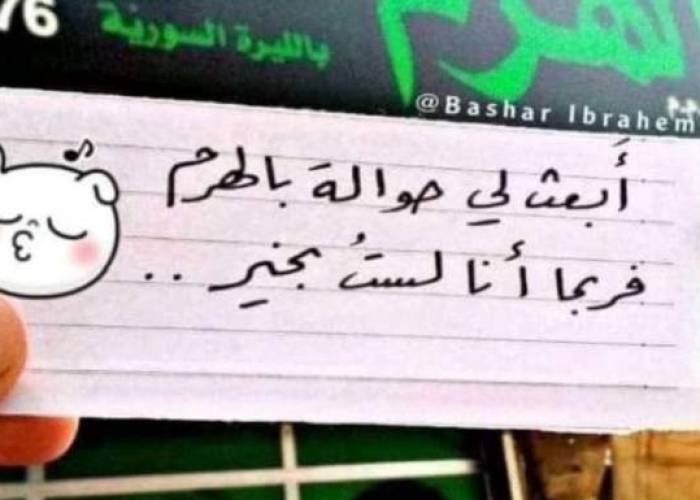 76
بالليرة السورية
الهرم
@Bashar Ibrahem
أَبعث لي حوالة بالهرم
فربما أنا لستُ بخير ..